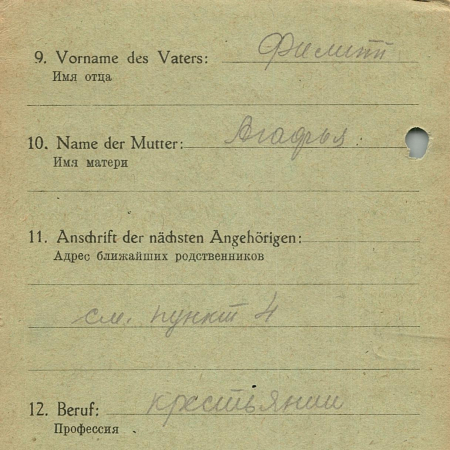 9. Vorname des Vaters: Филипп
Имя отца
10. Name der Mutter: Агафья
Имя матери
11. Anschrift der nächsten Angehörigen:
Адрес ближайших родственников
см. пункт 4
12. Beruf: крестьянин
Профессия